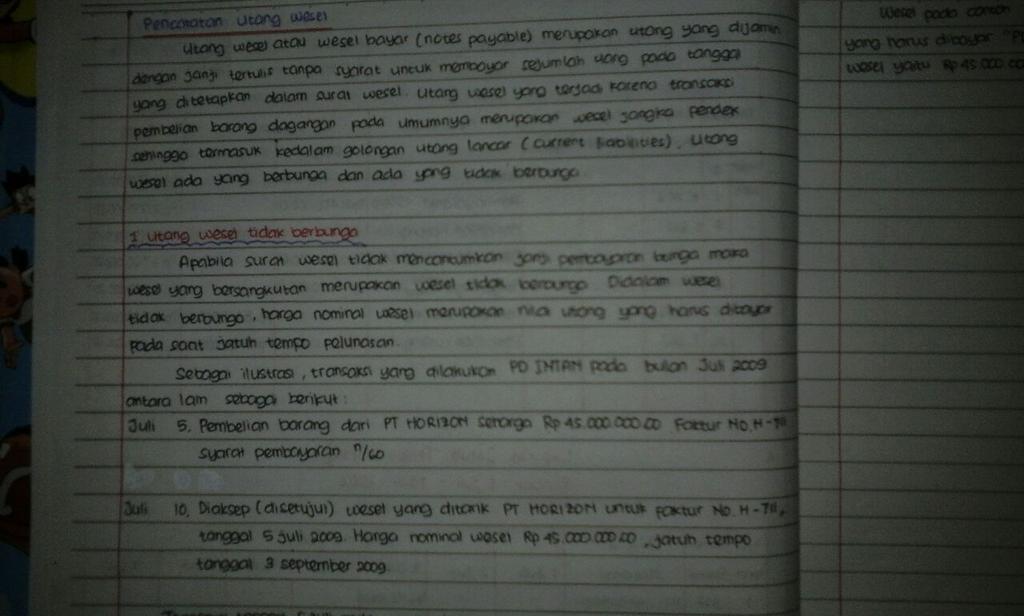 Pencatatan Utang Wesel
Utang wesel atau wesel bayar (notes payable) merupakan utang yang dijamin
dengan janji tertulis tanpa syarat untuk membayar sejumlah uang pada tanggal
yang ditetapkan dalam surat wesel. Utang wesel yang terjadi karena transaksi
pembelian barang dagangan pada umumnya merupakan wesel jangka pendek
sehingga termasuk kedalam golongan utang lancar (current liabilities). Utang
wesel ada yang berbunga dan ada yang tidak berbunga
1 Utang wesel tidak berbunga
Apabila surat wesel tidak mencantumkan janji pembayaran bunga maka
wesel yang bersangkutan merupakan wesel tidak berbunga. Didalam wesel
tidak berbunga, harga nominal wesel merupakan nilai utang yang harus dibayar
pada saat jatuh tempo pelunasan.
Sebagai ilustrasi, transaksi yang dilakukan PD INTAN pada bulan Juli 2009
antara lain sebagai berikut:
Juli 5. Pembelian barang dari PT HORIZON seharga Rp 45.000.000.00 Faktur No. H-711
syarat pembayaran n/60
Juli 10. Diaksep (disetujui) wesel yang ditarik PT HORIZON untuk faktur No. H-711,
tanggal 5 juli 2009. Harga nominal wesel Rp 45.000.000.00, jatuh tempo
tanggal 3 september 2009.
Wesel pada contoh
yang harus dibayar
wesel yaitu Rp 45.000.00